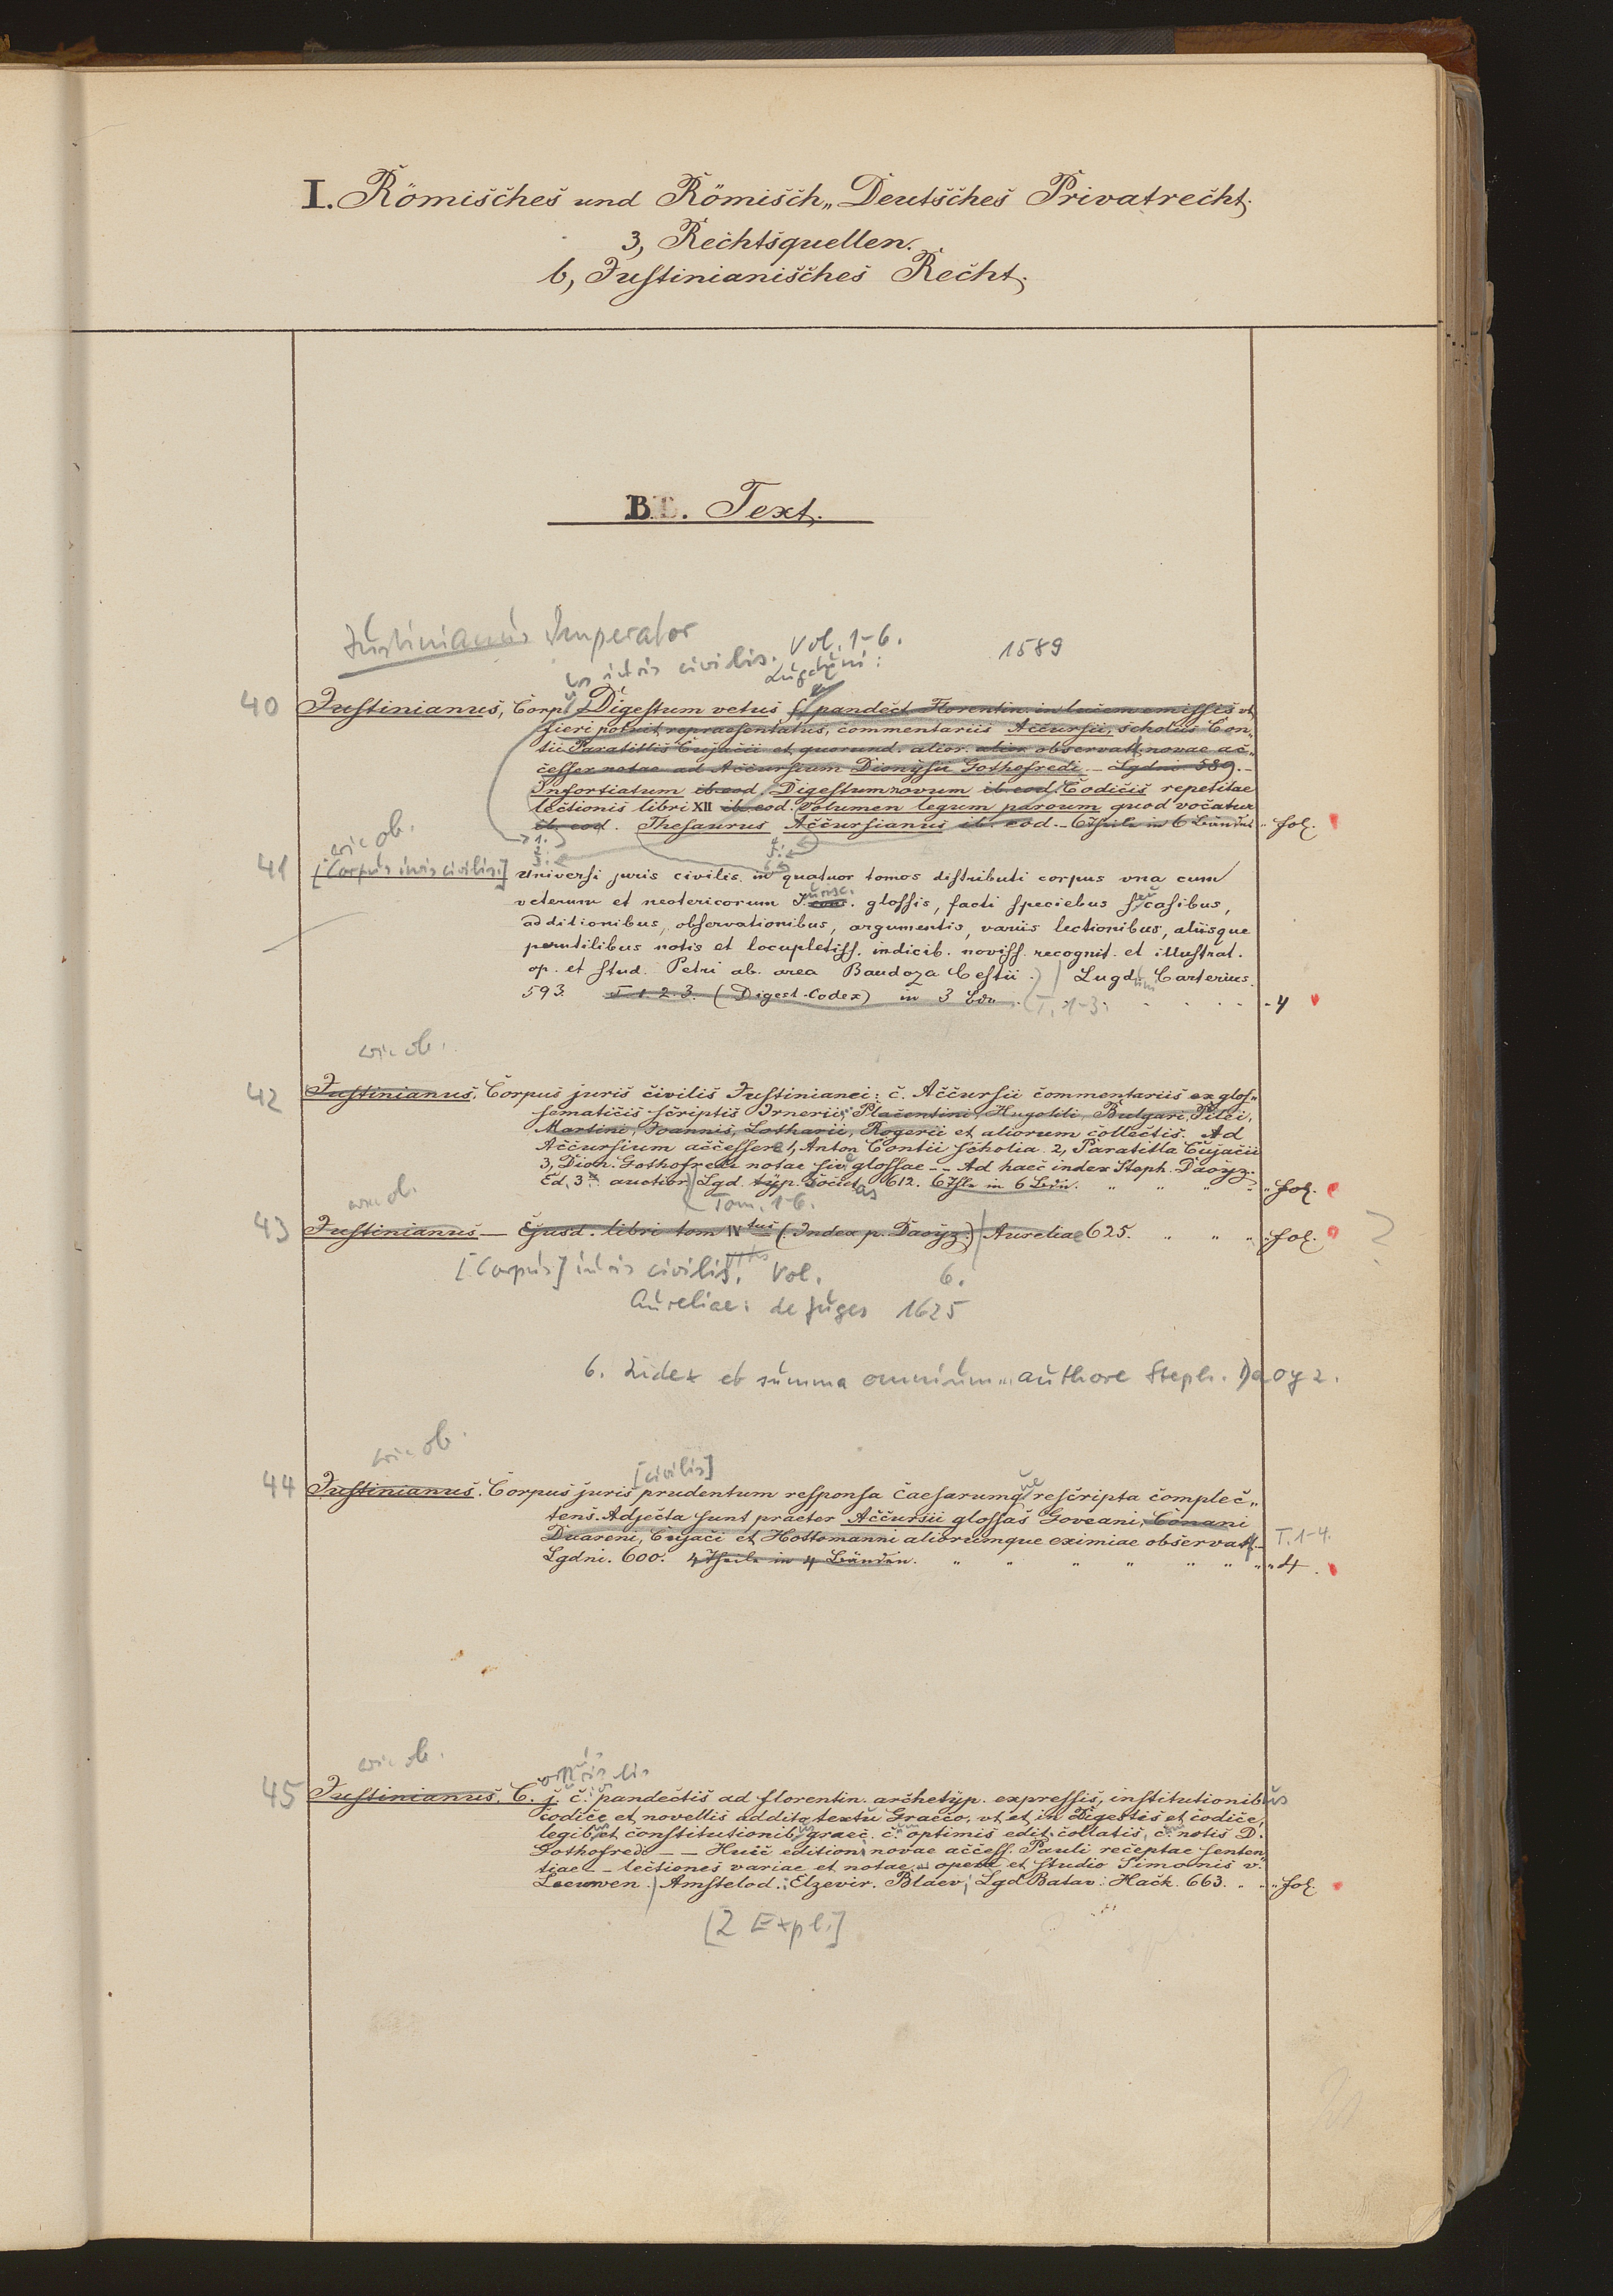 I. Römisches und Römisch„ Deutsches Privatrecht.
3, Rechtsquellen.
b, Justinianisches Recht.
B. Text.
Justinianus Imperator
iuris civilis. Vol. 1-6. 1589
Lugduni:
40 Justinianus, Corp. Digestum vetus pandect Florentin. in lucem emissis vt,
fieri potuit repraesentatus, commentariis Accursii, scholiis Con„
tii Paratitlis Cujacii et quorund. alior. observatt. novae ac„
cesser notae ad Accursium Dionysii Gothofredi. – Lgdni 589. –
Infortiatum ib. eod. Digestum novum ib. eod. Codicis repetitae
lectionis libri XII ib. eod. Volumen legum parvum quod vocatur
ib. eod. Thesaurus Accursianus ib. eod. – 6 Theile in 6 Bänden „ fol.
1. 4.
2. 5.
3. 6.
wie ob.
41 [Corpus iuris civilis.] Universi juris civilis in quatuor tomos distributi corpus vna cum
veterum et neotericorum J. cons. glossis, facti speciebus seu casibus,
additionibus, observationibus, argumentis, variis lectionibus, aliisque
perutilibus notis et locupletiss. indicib. noviss. recognit. et illustrat.
op. et stud. Petri ab. area Baudoza Cestii.) Lugduni Carterius.
593. T. 1. 2. 3. (Digest. Codex) in 3 Bdn. (T. 1-3. - 4
wie ob.
42 Justinianus. Corpus juris civilis Justinianei: c. Accursii commentariis ex glos„
sematicis scriptis Irnerii, Placentini, Hugolili, Bulgari, Pilei,
Martini, Joannis, Lotharii, Rogerii et aliorum collectis. Ad
Accursium accessere 1, Anton Contii scholia 2, Paratitla Cujacii
3, Dion. Gothofredi notae sive glossae – – Ad haec index Steph. Daoyz.
Ed. 3a auctior. Lgd. typ. Societas 612. 6 Thle in 6 Bdn. „ „ „ „ fol.
Tom. 1-6.
wie ob.
43 Justinianus – Ejusd. libri tom IVtus (Index p. Daoyz.) Aureliae 625. „ „ „ fol. ?
[Corpus] iuris civilis. Vol. 6.
Aureliae: de Juges 1625
6. Index et summa omnium... authore Steph. Daoyz.
wie ob.
[civilis]
44 Justinianus. Corpus juris prudentum responsa Caesarumque rescripta complec„
tens. Adjecta sunt praeter Accursii glossas Goveani, Conani
Duareni, Cujaci et Hottomanni aliorumque eximiae observatt. – T. 1-4.
Lgdni. 600. 4 Theile in 4 Bänden. „ „ „ „ „ „ „ 4.
wie ob.
45 Justinianus. C. j. c. pandectis ad florentin. archetyp. expressis, institutionibus
codice et novellis addito textu Graeco, vt et in Digestis et codice,
legibus et constitutionibus graec. cum optimis edit. collatis, cum notis D.
Gothofredi – – Huic editioni novae access. Pauli receptae senten„
tiae – – lectiones variae et notae – opera et studio Simonis v.
Leeuwen.) Amstelod.: Elzevir. Blaev; Lgd Batav: Hack. 663. „ „ fol.
[2 Expl.]